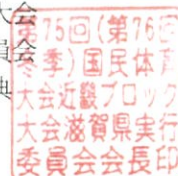 大会
員会
典
第75回(第76回
冬季)国民体育
大会近畿ブロック
大会滋賀県実行
委員会会長印